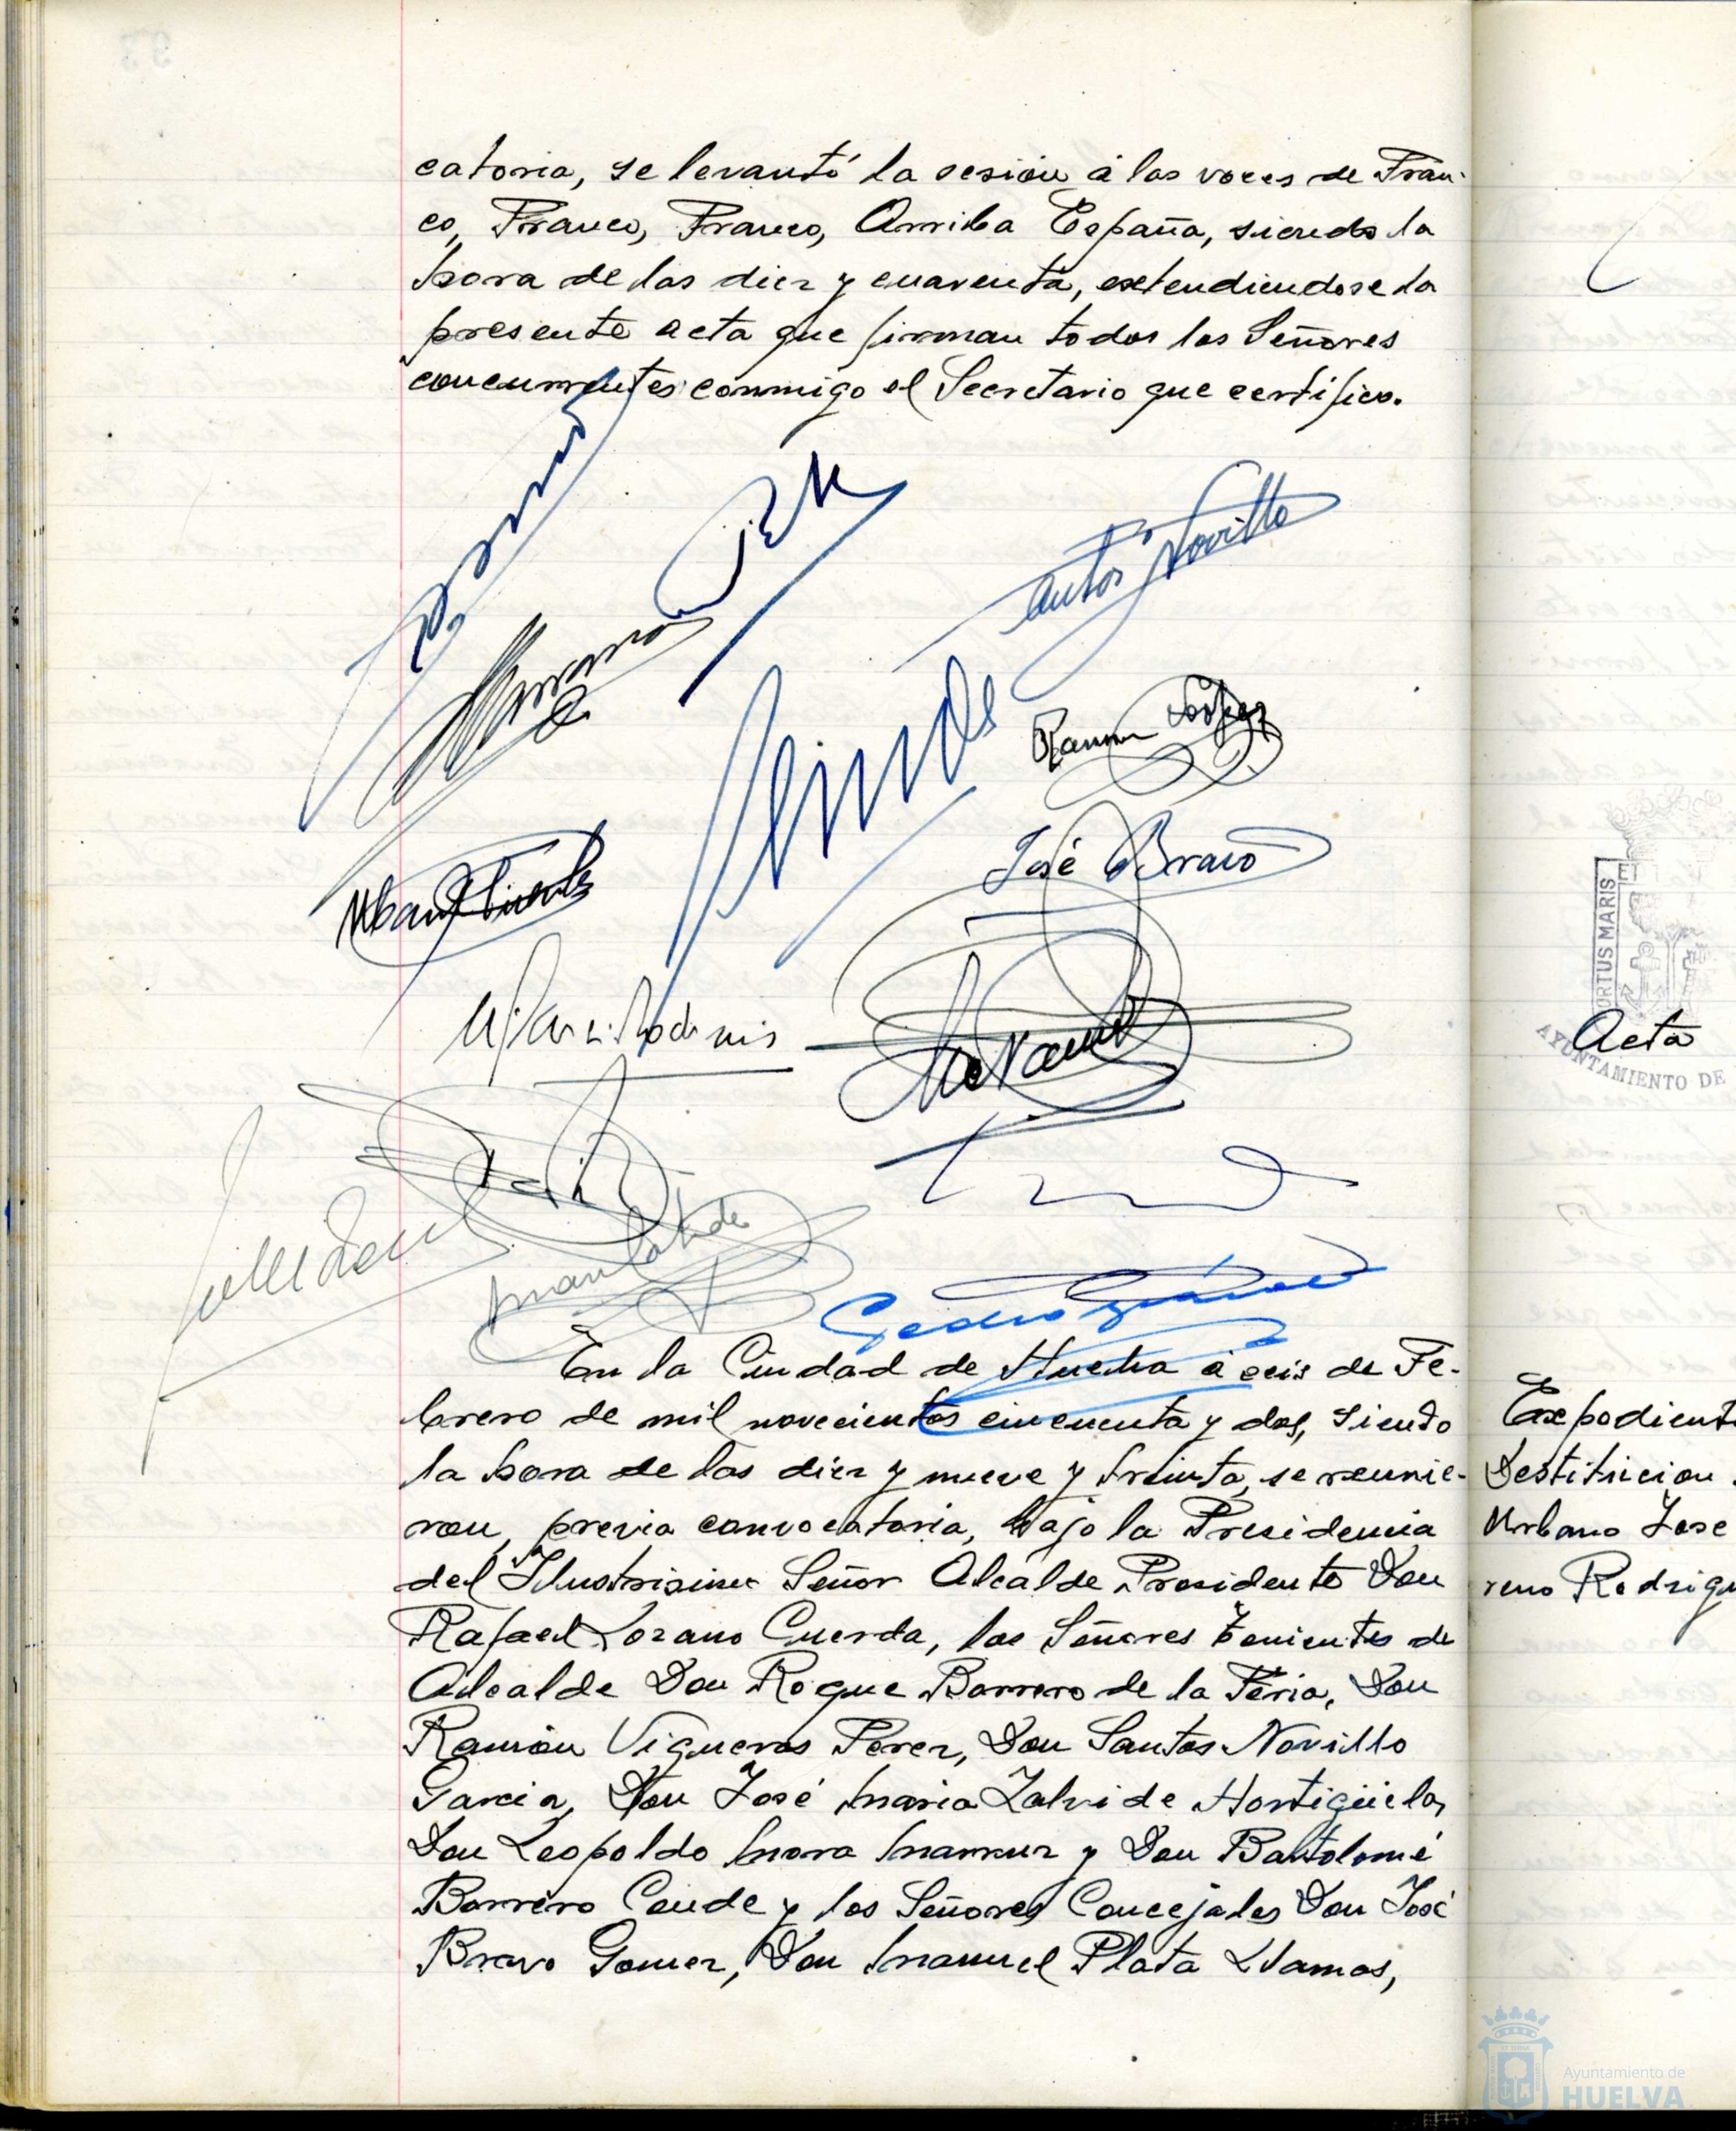 catoria, se levantó la sesión á las voces de Fran-
co, Franco, Franco, Arriba España, siendo la
hora de las diez y cuarenta, extendiendose la
presente acta que firman todos los Señores
concurrentes conmigo el Secretario que certifico.
Santos Novillo
Ramon
José Bravo
Pedro
En la Ciudad de Huelva á seis de Fe-
brero de mil novecientos cincuenta y dos, siendo
la hora de las diez y nueve y treinta, se reunie-
ron, previa convocatoria, bajo la Presidencia
del Ilustrisimo Señor Alcalde Presidente Don
Rafael Lozano Cuerda, los Señores Tenientes de
Alcalde Don Roque Barrero de la Feria, Don
Ramón Vigueras Perez, Don Santos Novillo
Garcia, Don José Maria Zalvide Hortigüela,
Don Leopoldo Mora Marruz y Don Bartolomé
Borrero Conde y los Señores Concejales Don José
Bravo Gomez, Don Manuel Plata Llamas,
PORTUS MARIS ET
Acta
AYUNTAMIENTO DE
Expediente
Destitucion
Urbano Jose
reno Rodrigu
Ayuntamiento de
HUELVA